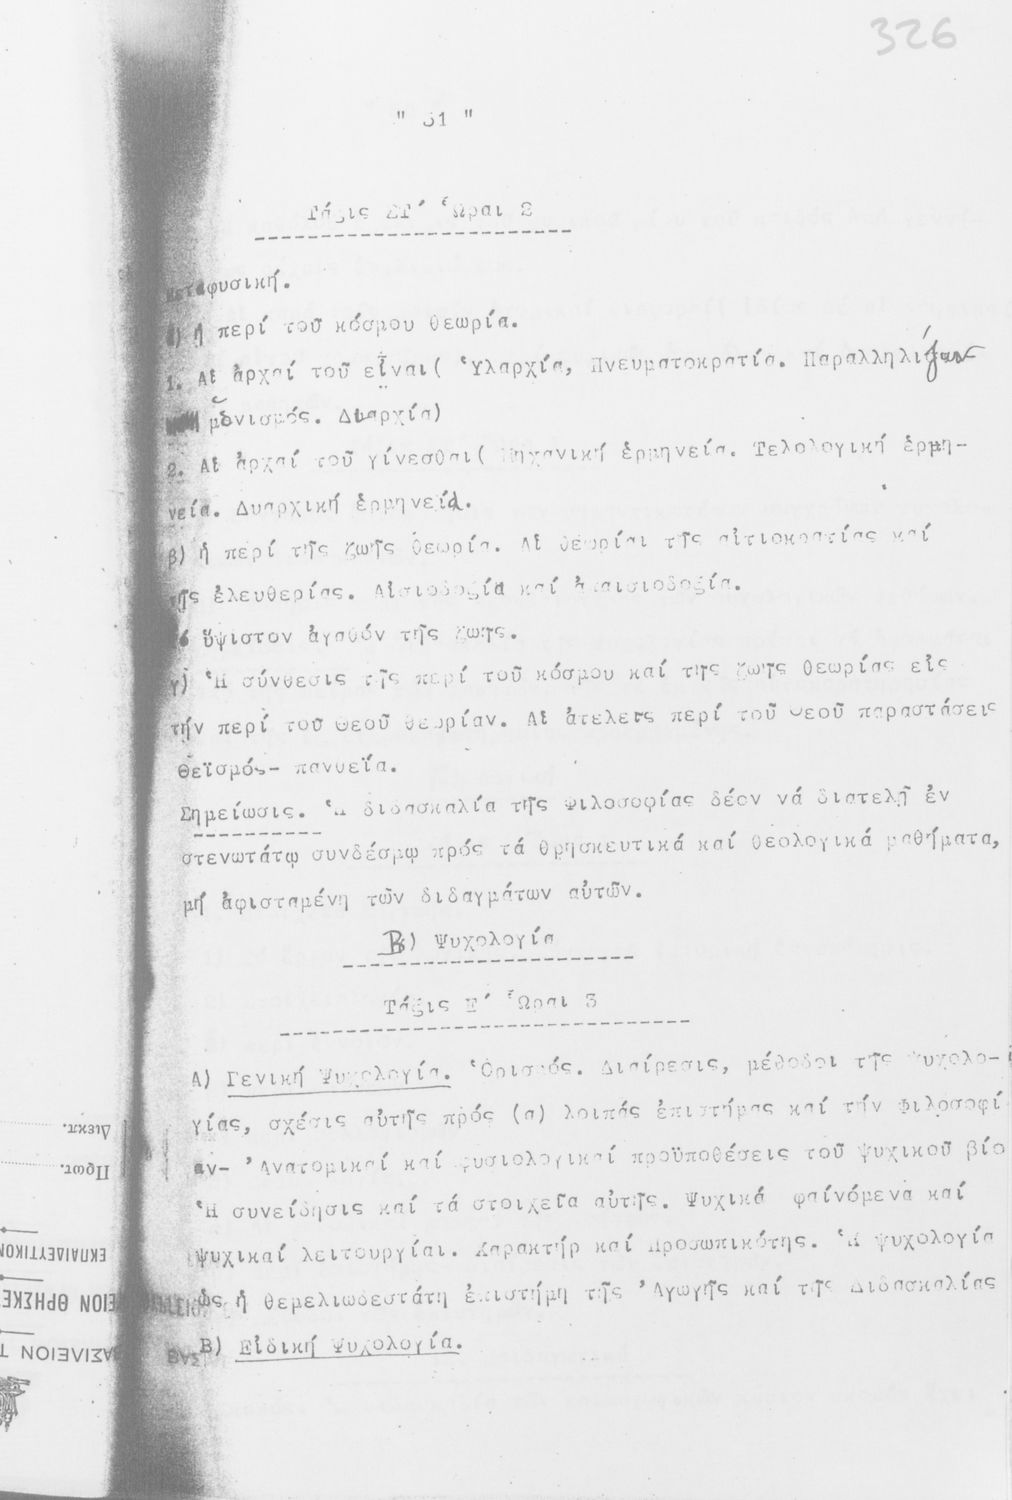 326
" 31 "
Τάξις ΣΤ´ Ὧραι 2
Μεταφυσική.
α) ἡ περί τοῦ κόσμου θεωρία.
1. Αἱ ἀρχαί τοῦ εἶναι( Ὑλαρχία, Πνευματοκρατία. Παραλληλισμὸς
μονισμός. Δυαρχία)
2. Αἱ ἀρχαί τοῦ γίνεσθαι( Μηχανική ἑρμηνεία. Τελολογική ἑρμη-
νεία. Δυαρχική ἑρμηνεία.
β) ἡ περί τῆς ζωῆς θεωρία. Αἱ θεωρίαι τῆς αἰτιοκρατίας καί
τῆς ἐλευθερίας. Αἰσιοδοξία καί ἀπαισιοδοξία.
Τό ὕψιστον ἀγαθόν τῆς ζωῆς.
γ) Ἡ σύνθεσις τῆς περί τοῦ κόσμου καί τῆς ζωῆς θεωρίας εἰς
τήν περί τοῦ Θεοῦ θεωρίαν. Αἱ ἀτελεῖς περί τοῦ Θεοῦ παραστάσεις
Θεϊσμός- πανθεΐα.
Σημείωσις. Ἡ διδασκαλία τῆς Φιλοσοφίας δέον νά διατελῇ ἐν
στενωτάτῳ συνδέσμῳ πρός τά θρησκευτικά καί θεολογικά μαθήματα,
μή ἀφισταμένη τῶν διδαγμάτων αὐτῶν.
Β) Ψυχολογία
Τάξις Ε´ Ὧραι 3
Α) Γενική Ψυχολογία. Ὁρισμός. Διαίρεσις, μέθοδοι τῆς Ψυχολο-
γίας, σχέσις αὐτῆς πρός (α) λοιπάς ἐπιστήμας καί τήν Φιλοσοφί
αν- Ἀνατομικαί καί φυσιολογικαί προϋποθέσεις τοῦ ψυχικοῦ βίο
Ἡ συνείδησις καί τά στοιχεῖα αὐτῆς. Ψυχικά φαίνόμενα καί
ψυχικαί λειτουργίαι. Χαρακτήρ καί Προσωπικότης. Ἡ ψυχολογία
ὡς ἡ θεμελιωδεστάτη ἐπιστήμη τῆς Ἀγωγῆς καί τῆς Διδασκαλίας
Β) Εἰδική Ψυχολογία.
Διεκπ.
Πρωτ.
ΕΚΠΑΙΔΕΥΤΙΚΟΝ
ΕΙΟΝ ΘΡΗΣΚΕ
ΒΑΣΙΛΕΙΟΝ Τ